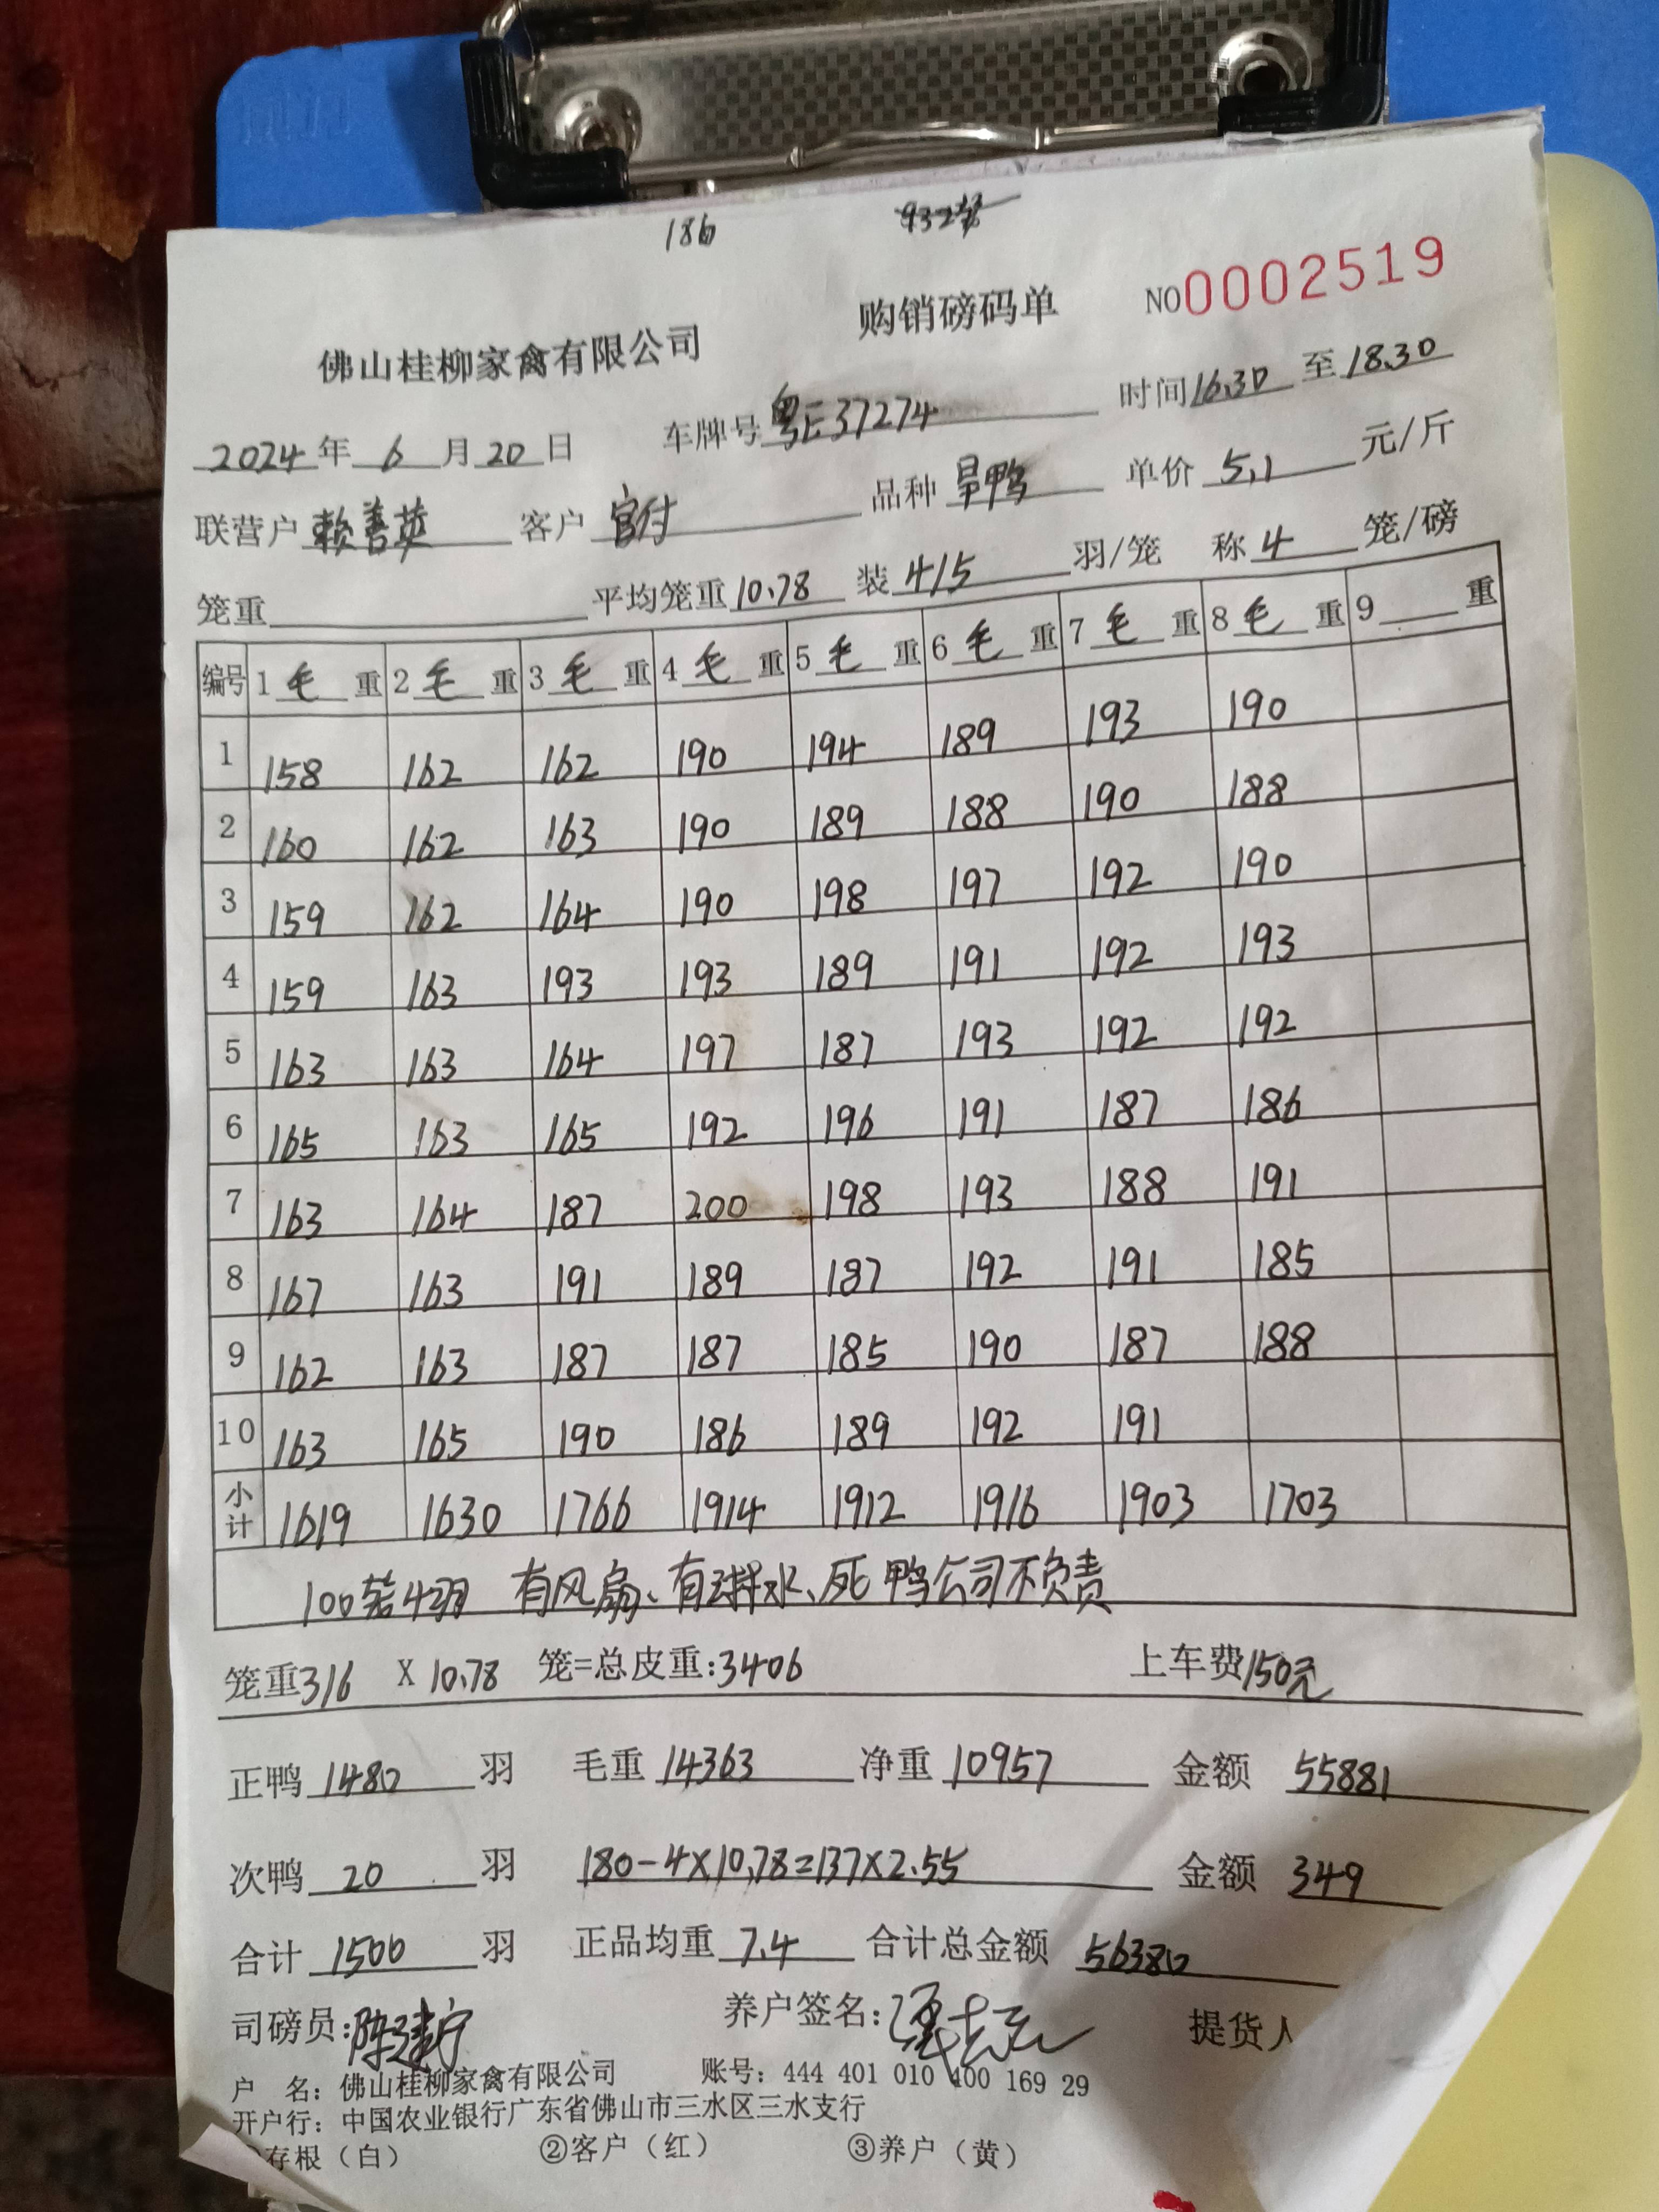 186
佛山桂柳家禽有限公司 购销磅码单 NO0002519
2024年6月20日 车牌号粤E37274 时间16.30至18.30
联营户赖善英 客户官付 品种旱鸭 单价5.1元/斤
笼重 平均笼重10.78 装4/5羽/笼 称4笼/磅
编号 1毛重 2毛重 3毛重 4毛重 5毛重 6毛重 7毛重 8毛重 9重
1 158 162 162 190 194 189 193 190
2 160 162 163 190 189 188 190 188
3 159 162 164 190 198 197 192 190
4 159 163 193 193 189 191 192 193
5 163 163 164 197 187 193 192 192
6 165 163 165 192 196 191 187 186
7 163 164 187 200 198 193 188 191
8 167 163 191 189 187 192 191 185
9 162 163 187 187 185 190 187 188
10 163 165 190 186 189 192 191
小计 1619 1630 1766 1914 1912 1916 1903 1703
100装4羽 有风扇、有淋水、死鸭公司不负责
笼重316 X 10.78 笼=总皮重:3406 上车费150元
正鸭1480羽 毛重14363 净重10957 金额55881
次鸭20羽 180-4X10.78=137X2.55 金额349
合计1500羽 正品均重7.4 合计总金额56380
司磅员:陈建宁 养户签名: 提货人
户 名: 佛山桂柳家禽有限公司 账号: 444 401 010 400 169 29
开户行: 中国农业银行广东省佛山市三水区三水支行
存根(白) ②客户(红) ③养户(黄)